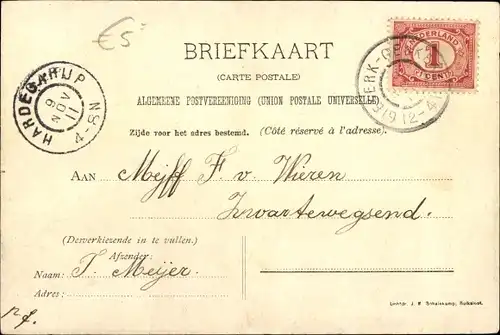 €5
BRIEFKAART
(CARTE POSTALE)
ALGEMEENE POSTVEREENIGING (UNION POSTALE UNIVERSELLE)
Zijde voor het adres bestemd. (Côté réservé à l'adresse).
HARDEGARIJP
9 NOV 11
4-8N
NEDERLAND
1
CENT
12-4
AAN Mejff F. v. Wieren
Zwartewegsend.
(Desverkiezende in te vullen).
Afzender:
Naam: T. Meijer.
Adres: